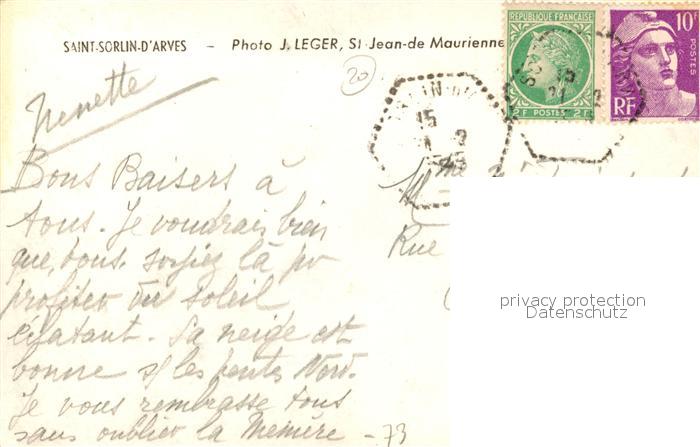 SAINT-SORLIN-D'ARVES – Photo J. LEGER, St-Jean-de Maurienne
REPUBLIQUE FRANÇAISE
2F POSTES 2F
10F
POSTES
RF
20
15
2
Nenette
Bons Baisers à
tous. Je voudrais bien
que vous soyiez là pr
profiter du soleil
éclatant. La neige est
bonne s/ les pentes Nord.
Je vous rembrasse tous
sans oublier la Mémère
- 73
Mme
Rue
privacy protection
Datenschutz